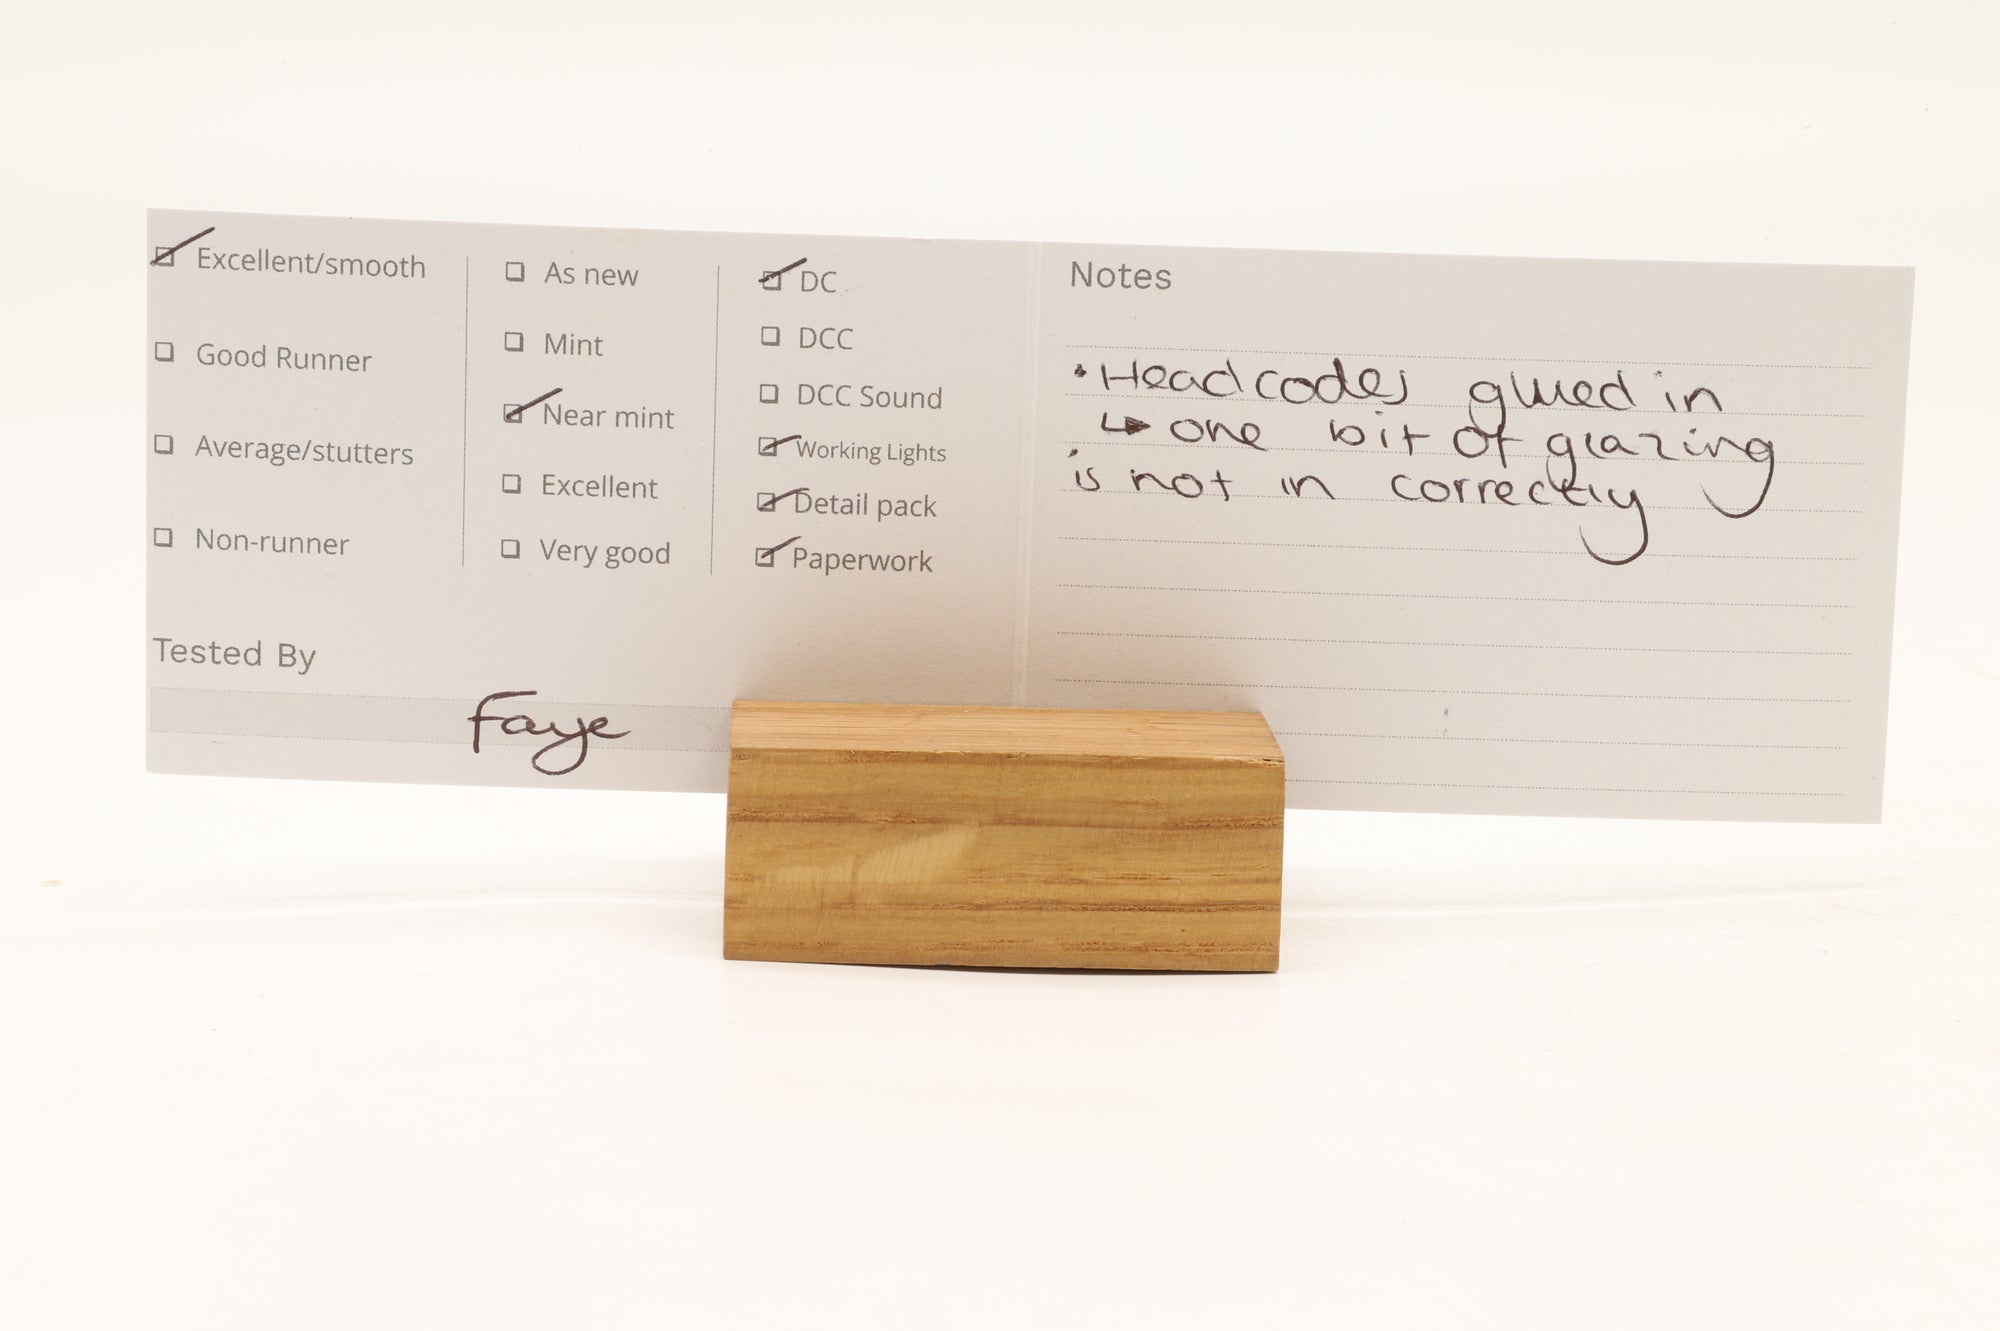 Excellent/smooth
Good Runner
Average/stutters
Non-runner
As new
Mint
Near mint
Excellent
Very good
DC
DCC
DCC Sound
Working Lights
Detail pack
Paperwork
Tested By
Faye
Notes
• Headcodes glued in
↳ one bit of glazing
is not in correctly